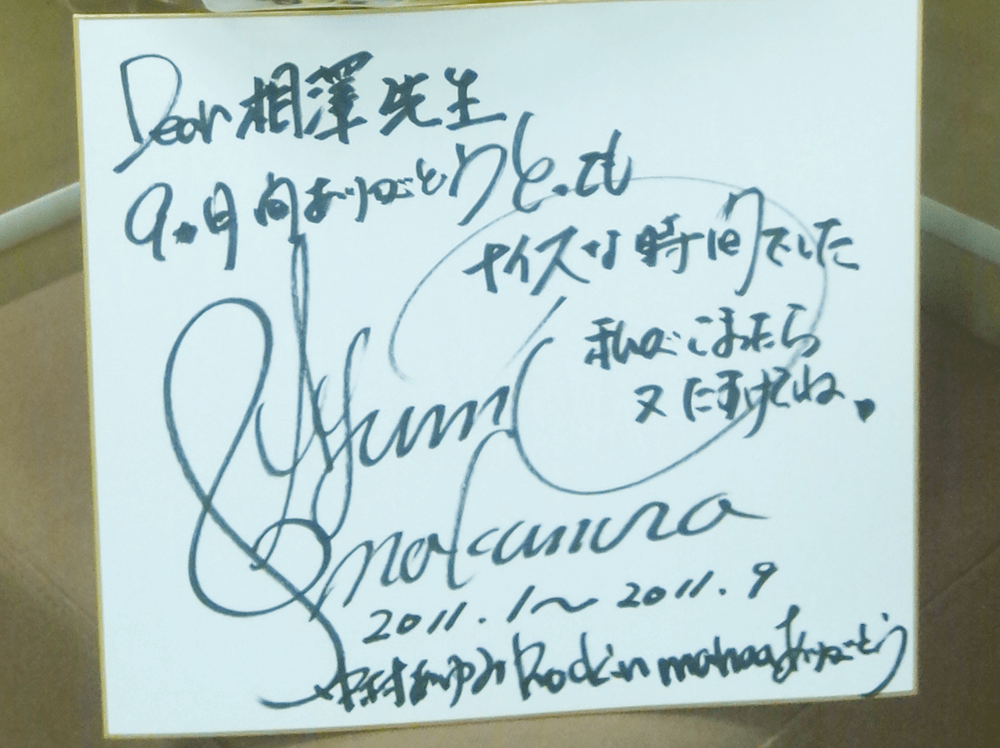 Dear 相澤先生
9ヶ月間ありがとう とっても
ナイスな時間でした
私がこまったら
又たすけてね。
Ayumi
Nakamura
2011.1〜2011.9
中村あゆみ Rock'n ありがとう